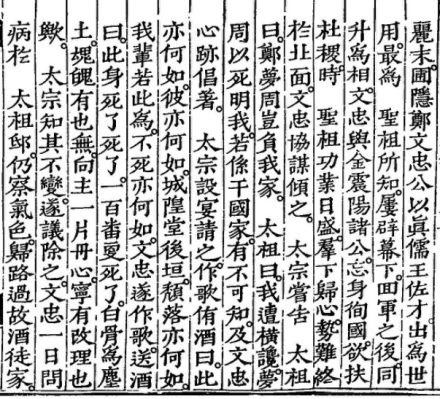 麗末圃隱鄭文忠公以眞儒王佐才出爲世
用。最爲 聖祖所知。屢辟幕下。回軍之後。同
升爲相。文忠與金震陽諸公。忘身徇國。欲扶
社稷。時 聖祖功業日盛。羣下歸心。勢難終
於北面。文忠協謀傾之。 太宗嘗告 太祖
曰。鄭夢周豈負我家。 太祖曰。我遭橫讒。夢
周以死明我。若係干國家。有不可知。及文忠
心跡倡著。 太宗設宴請之。作歌侑酒曰。此
亦何如。彼亦何如。城隍堂後垣。頹落亦何如。
我輩若此爲。不死亦何如。文忠遂作歌送酒
曰。此身死了死了。一百番更死了。白骨爲塵
土。魂魄有也無。向主一片丹心。寧有改理也
歟。 太宗知其不變。遂議除之。文忠一日問
病於 太祖邸。仍察氣色。歸路過故酒徒家。